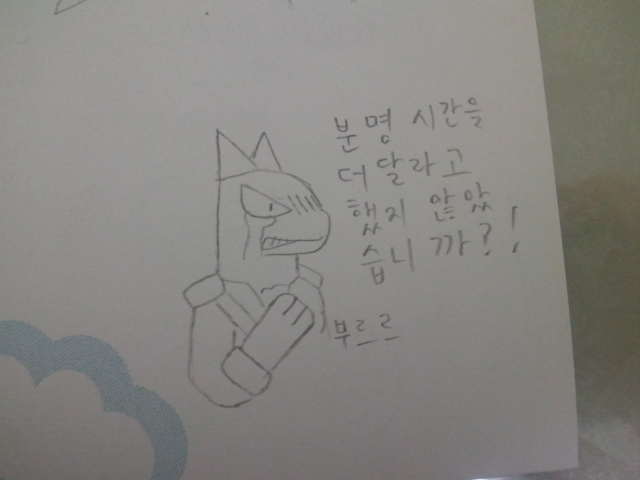 분명 시간을
더 달라고
했지 않았
습니까?!
부르르